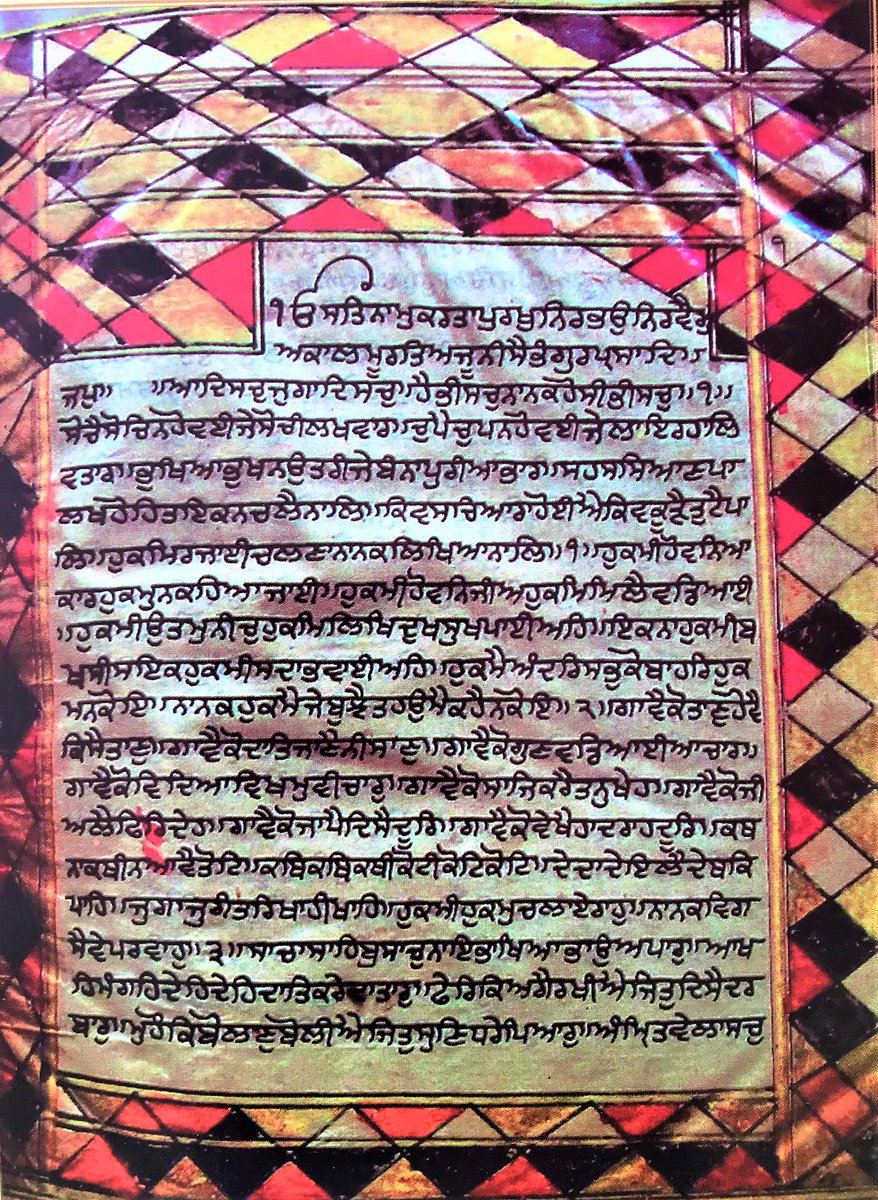 ੧
ੴ ਸਤਿਨਾਮੁਕਰਤਾਪੁਰਖੁਨਿਰਭਉਨਿਰਵੈਰੁ
ਅਕਾਲਮੂਰਤਿਅਜੂਨੀਸੈਭੰਗੁਰਪ੍ਰਸਾਦਿ॥
ਜਪੁ॥ ॥ਆਦਿਸਚੁਜੁਗਾਦਿਸਚੁ॥ਹੈਭੀਸਚੁਨਾਨਕਹੋਸੀਭੀਸਚੁ॥੧॥
ਸੋਚੈਸੋਚਿਨਹੋਵਈਜੇਸੋਚੀਲਖਵਾਰ॥ਚੁਪੈਚੁਪਨਹੋਵਈਜੇਲਾਇਰਹਾਲਿ
ਵਤਾਰ॥ਭੁਖਿਆਭੁਖਨਉਤਰੀਜੇਬੰਨਾਪੁਰੀਆਭਾਰ॥ਸਹਸਸਿਆਣਪਾ
ਲਖਹੋਹਿਤਾਇਕਨਚਲੈਨਾਲਿ॥ਕਿਵਸਚਿਆਰਾਹੋਈਐਕਿਵਕੂੜੈਤੁਟੈਪਾ
ਲਿ॥ਹੁਕਮਿਰਜਾਈਚਲਣਾਨਾਨਕਲਿਖਿਆਨਾਲਿ॥੧॥ਹੁਕਮੀਹੋਵਨਿਆ
ਕਾਰਹੁਕਮੁਨਕਹਿਆਜਾਈ॥ਹੁਕਮੀਹੋਵਨਿਜੀਅਹੁਕਮਿਮਿਲੈਵਡਿਆਈ
॥ਹੁਕਮੀਉਤਮੁਨੀਚੁਹੁਕਮਿਲਿਖਿਦੁਖਸੁਖਪਾਈਅਹਿ॥ਇਕਨਾਹੁਕਮੀਬ
ਖਸੀਸਇਕਹੁਕਮੀਸਦਾਭਵਾਈਅਹਿ॥ਹੁਕਮੈਅੰਦਰਿਸਭੁਕੋਬਾਹਰਿਹੁਕ
ਮਨਕੋਇ॥ਨਾਨਕਹੁਕਮੈਜੇਬੁਝੈਤਹਉਮੈਕਹੈਨਕੋਇ॥੨॥ਗਾਵੈਕੋਤਾਣੁਹੋਵੈ
ਕਿਸੈਤਾਣੁ॥ਗਾਵੈਕੋਦਾਤਿਜਾਣੈਨੀਸਾਣੁ॥ਗਾਵੈਕੋਗੁਣਵਡਿਆਈਆਚਾਰ॥
ਗਾਵੈਕੋਵਿਦਿਆਵਿਖਮੁਵੀਚਾਰੁ॥ਗਾਵੈਕੋਸਾਜਿਕਰੇਤਨੁਖੇਹ॥ਗਾਵੈਕੋਜੀ
ਅਲੈਫਿਰਿਦੇਹ॥ਗਾਵੈਕੋਜਾਪੈਦਿਸੈਦੂਰਿ॥ਗਾਵੈਕੋਵੇਖੈਹਾਦਰਾਹਦੂਰਿ॥ਕਥ
ਨਾਕਥੀਨਆਵੈਤੋਟਿ॥ਕਥਿਕਥਿਕਥੀਕੋਟੀਕੋਟਿਕੋਟਿ॥ਦੇਦਾਦੇਇਲੈਦੇਥਕਿ
ਪਾਹਿ॥ਜੁਗਾਜੁਗੰਤਰਿਖਾਹੀਖਾਹਿ॥ਹੁਕਮੀਹੁਕਮੁਚਲਾਏਰਾਹੁ॥ਨਾਨਕਵਿਗ
ਸੈਵੇਪਰਵਾਹੁ॥੩॥ਸਾਚਾਸਾਹਿਬੁਸਾਚੁਨਾਇਭਾਖਿਆਭਾਉਅਪਾਰੁ॥ਆਖ
ਹਿਮੰਗਹਿਦੇਹਿਦੇਹਿਦਾਤਿਕਰੇਦਾਤਾਰੁ॥ਫੇਰਿਕਿਅਗੈਰਖੀਐਜਿਤੁਦਿਸੈਦਰ
ਬਾਰੁ॥ਮੁਹੌਕਿਬੋਲਣੁਬੋਲੀਐਜਿਤੁਸੁਣਿਧਰੇਪਿਆਰੁ॥ਅੰਮ੍ਰਿਤਵੇਲਾਸਚੁ